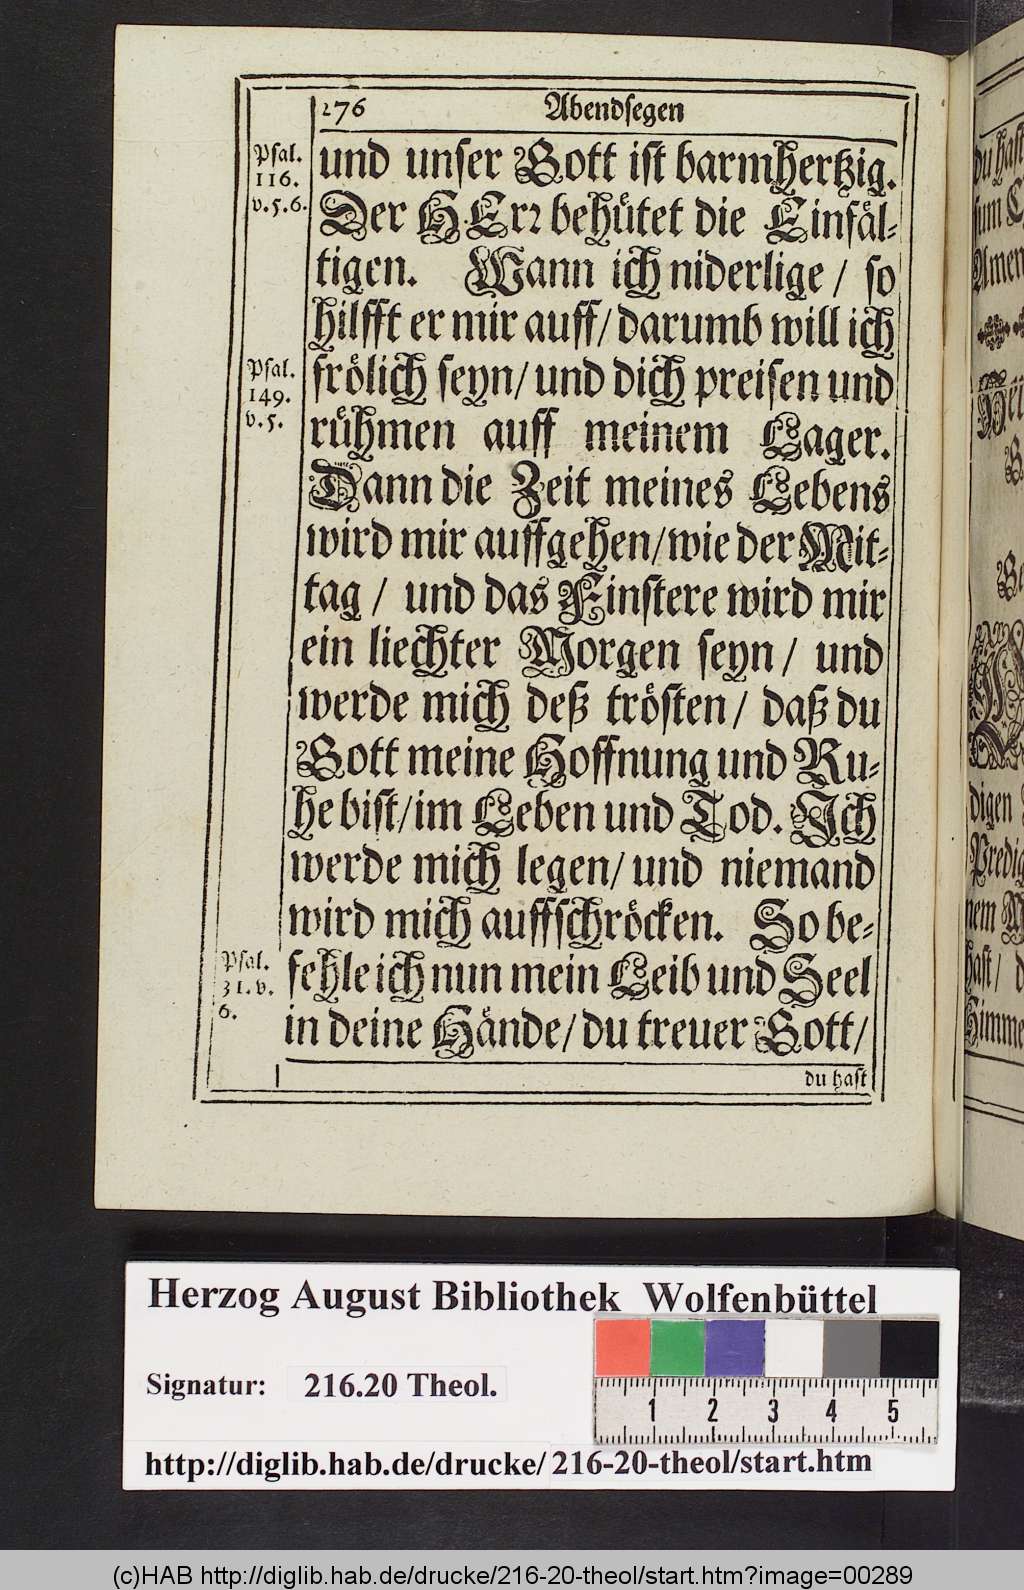 276 Abendsegen
Psal.
116.
v.5.6.
und unser Gott ist barmhertzig.
Der HErr behütet die Einfäl-
tigen. Wann ich niderlige/ so
hilfft er mir auff/ darumb will ich
Psal.
149.
v.5.
frölich seyn/ und dich preisen und
rühmen auff meinem Lager.
Dann die Zeit meines Lebens
wird mir auffgehen/ wie der Mit-
tag/ und das Finstere wird mir
ein liechter Morgen seyn/ und
werde mich deß trösten/ daß du
Gott meine Hoffnung und Ru-
he bist/ im Leben und Tod. Ich
werde mich legen/ und niemand
wird mich auffschröcken. So be-
Psal.
31. v.
6.
fehle ich nun mein Leib und Seel
in deine Hände/ du treuer Gott/
du hast
du hast
Amen
digen
Predig
hast/
Himme
Herzog August Bibliothek Wolfenbüttel
Signatur: 216.20 Theol.
1 2 3 4 5
http://diglib.hab.de/drucke/216-20-theol/start.htm
(c)HAB http://diglib.hab.de/drucke/216-20-theol/start.htm?image=00289